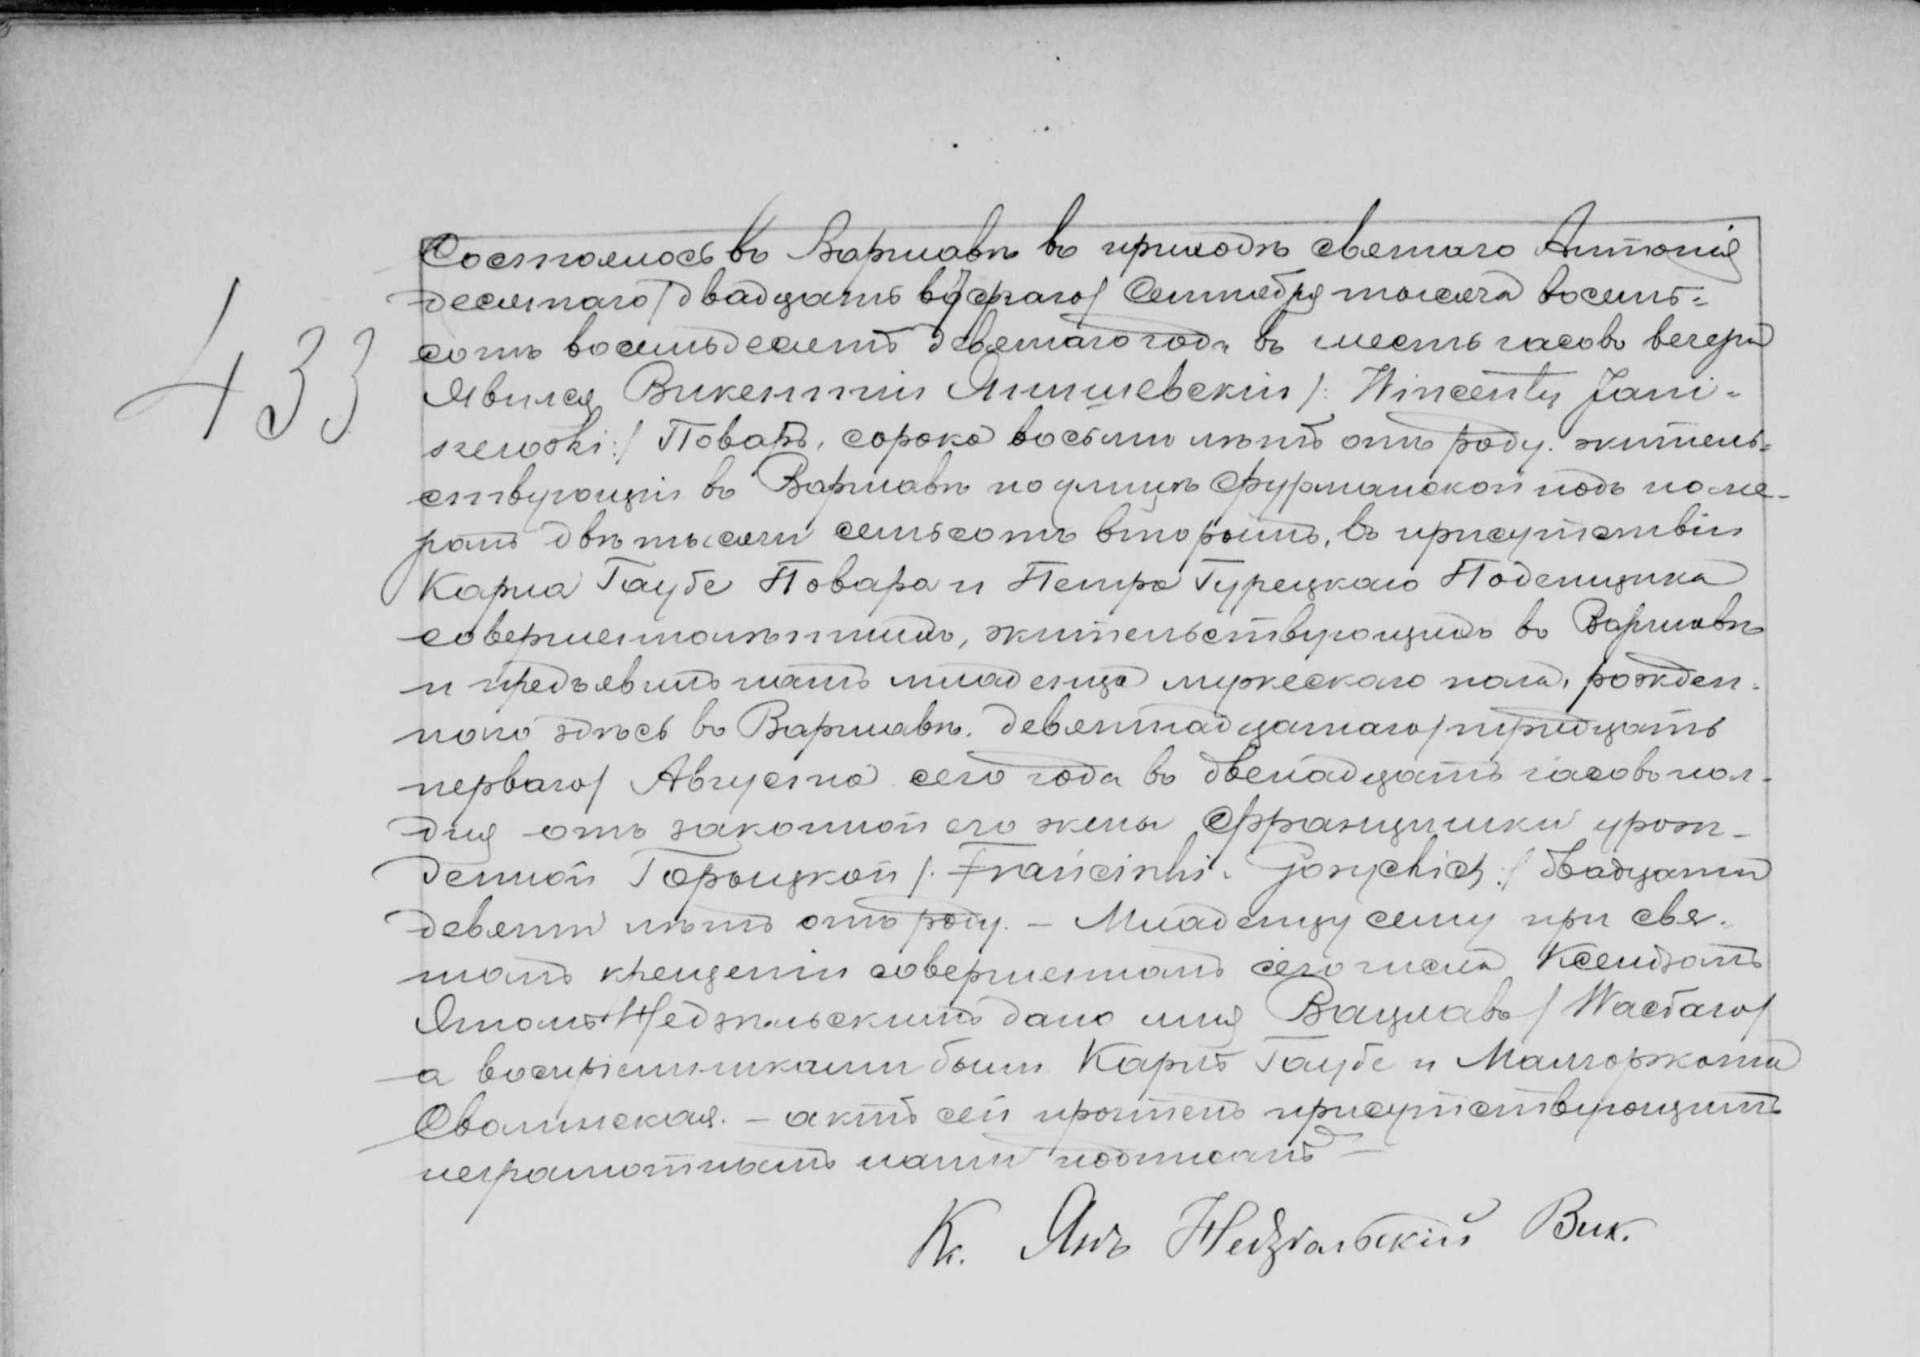 433
Состоялось въ Варшавѣ въ приходѣ святаго Антонія
десятаго/двадцать втораго/ Сентября тысяча восемь-
сотъ восемьдесятъ девятаго года въ шесть часовъ вечера
Явился Викентій Янишевскій /: Wincenty Jani-
szewski:/ Поваръ, сорока восьми лѣтъ отъ роду. житель-
ствующій въ Варшавѣ по улицѣ Фурманской подъ номе-
ромъ двѣ тысячи семьсотъ вторымъ, въ присутствіи
Карла Таубе Повара и Петра Турецкаго Поденщика
совершеннолѣтнихъ, жительствующихъ въ Варшавѣ
и предъявилъ намъ младенца мужескаго пола, рожден-
наго здѣсь въ Варшавѣ. девятнадцатаго/тридцать
перваго/ Августа сего года въ двенадцать часовъ пол-
дня отъ законной его жены Францишки урож-
денной Горыцкой /. Franciszki Goryckich :/ двадцати
девяти лѣтъ отъ роду. – Младенцу сему при свя-
томъ крещеніи совершенномъ сего числа Ксендзомъ
Яномъ Недзельскимъ дано имя Вацлавъ / Wacława/
а воспріемниками были Карлъ Таубе и Малгоржата
Свалинская. – актъ сей прочтенъ присутствующимъ
неграмотнымъ нами подписанъ –
Кс. Янъ Недзѣльскій Вик.